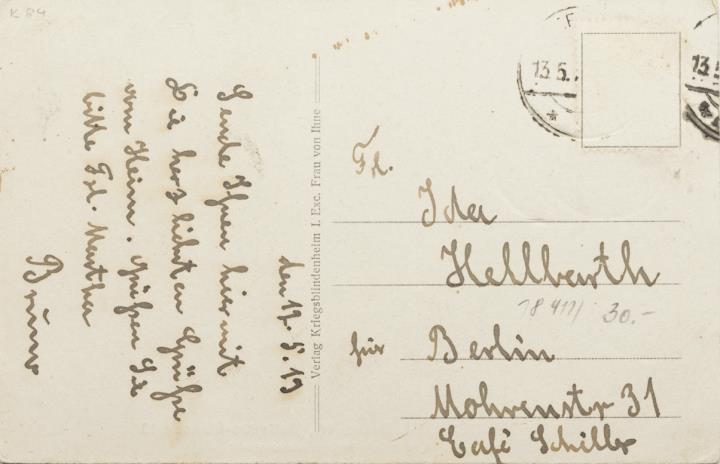 K 84
den 12.5.19
Sende Ihnen hiermit
die herzlichsten Grüße
vom Heim. Grüßen Sie
bitte Frl. Martha
Bruno
Verlag Kriegsblindenheim I. Exc. Frau von Ihne
13.5.
13.5
Frl.
Ida
Hellbarth
18 411/ 30.-
für Berlin
Mohrenstr 31
Café Schiller